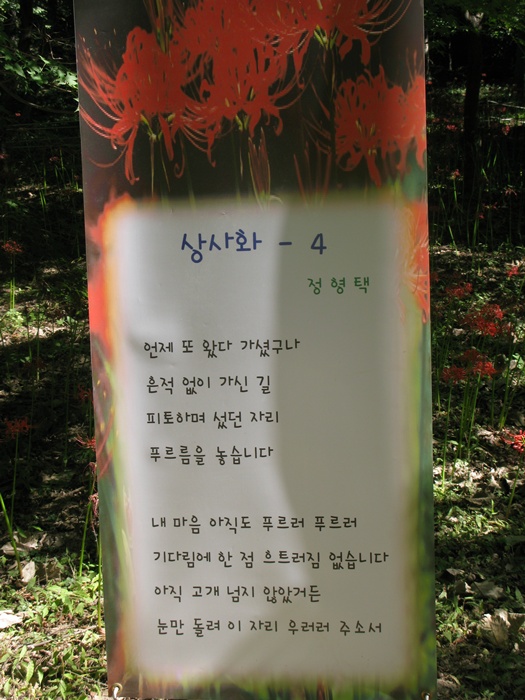 상사화 - 4
정형택
언제 또 왔다 가셨구나
흔적 없이 가신 길
피토하며 섰던 자리
푸르름을 놓습니다
내 마음 아직도 푸르러 푸르러
기다림에 한 점 흐트러짐 없습니다
아직 고개 넘지 않았거든
눈만 돌려 이 자리 우러러 주소서